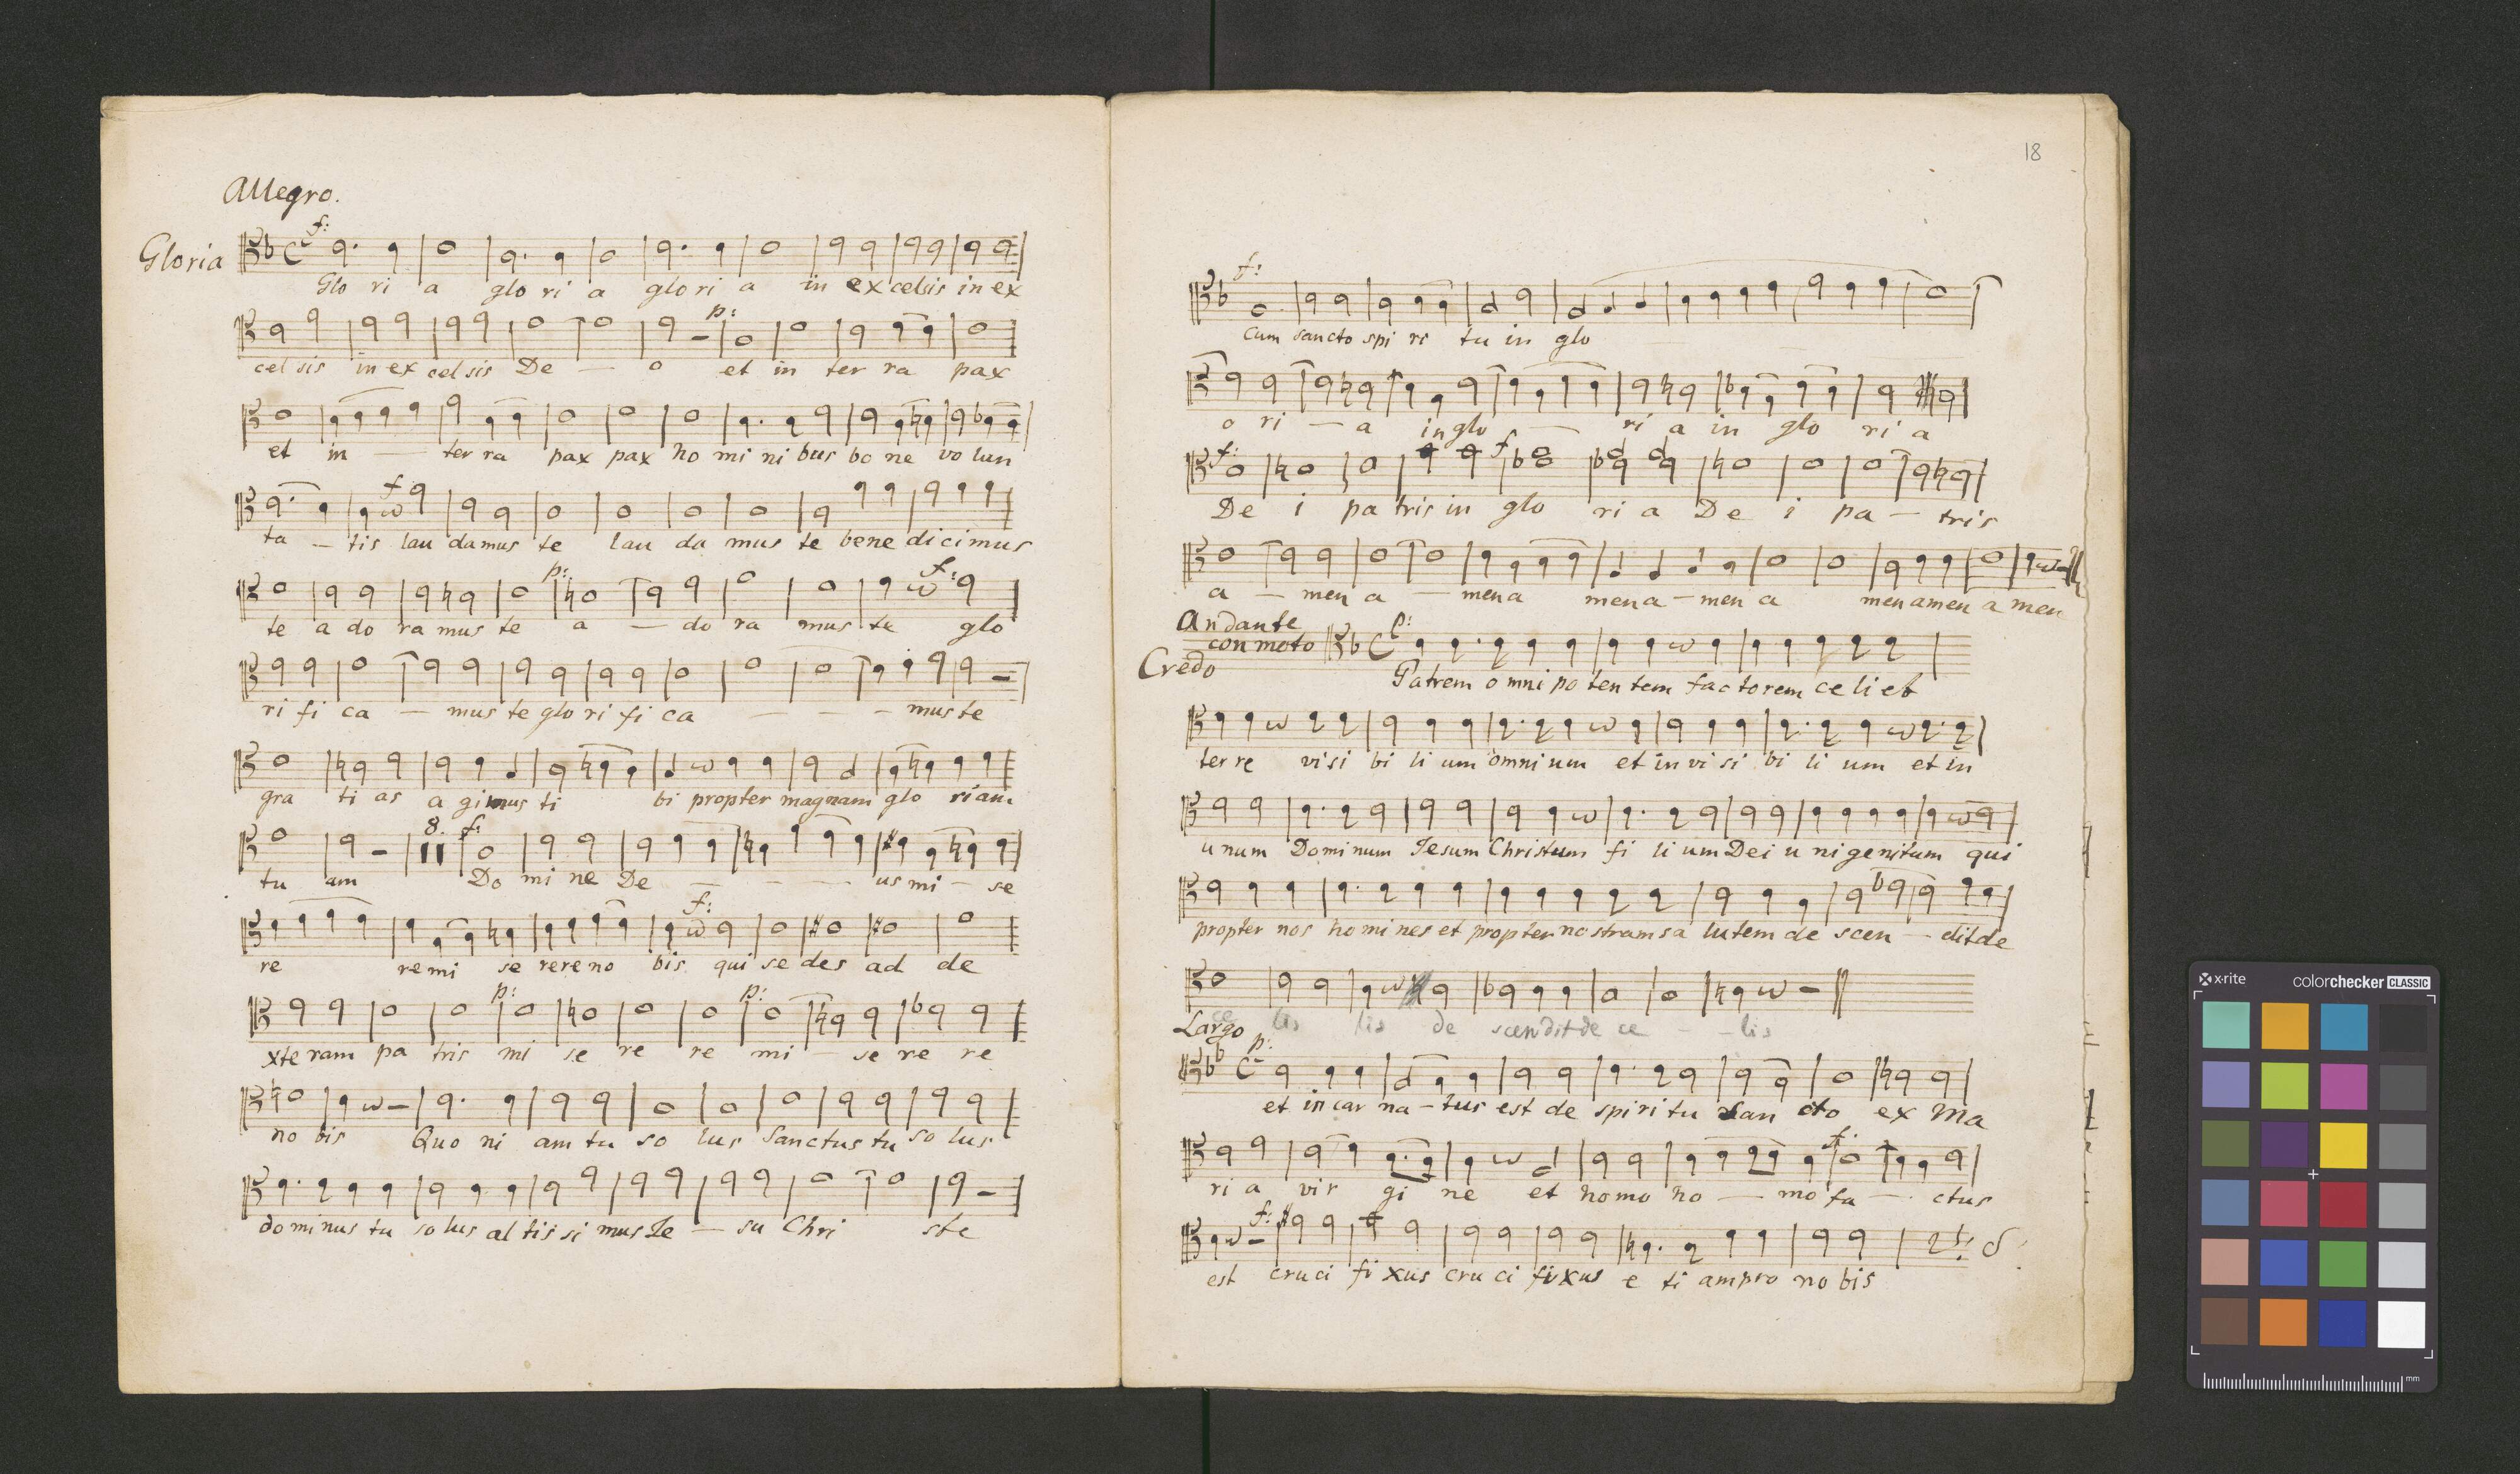 Allegro.
f:
Gloria
Glo ri a glo ri a glo ri a in ex celsis in ex
p:
cel sis in ex cel sis De — o et in ter ra pax
et in — ter ra pax pax ho mi ni bus bo ne vo lun
f
ta — tis lau damus te lau da mus te bene dicimus
p: f:
te a do ra mus te a — do ra mus te glo
ri fi ca — mus te glo ri fi ca — — — mus te
gra ti as a gimus ti bi propter magnam glo riam
8. f:
tu am Do mi ne De — — — us mi — se
f:
re re mi se re re no bis qui se des ad de
p: p:
xte ram pa tris mi se re re mi — se re re
no bis Quo ni am tu so lus Sanctus tu so lus
do mi nus tu so lus al tis si mus Je — su Chri ste
18
f:
cum sancto spi ri tu in glo
o ri — a in glo — ri a in glo ri a
f: f
De i pa tris in glo ri a De i pa — tris
a — men a — men a men a — men a men amen a men
Andante
con moto p:
Credo
Patrem omni po ten tem fac to rem ce li et
ter re visi bi li um omni um et in vi si bi li um et in
u num Dominum Jesum Christum fi li um Dei u ni genitum qui
propter nos homines et propter nostram sa lutem de scen — dit de
ce lis lis de scendit de ce — — lis
Largo p:
et in car na — tus est de spi ri tu San cto ex Ma
f:
ri a vir gi ne et homo ho — mo fa — ctus
f:
est cru ci fi xus cru ci fixus e ti am pro no bis